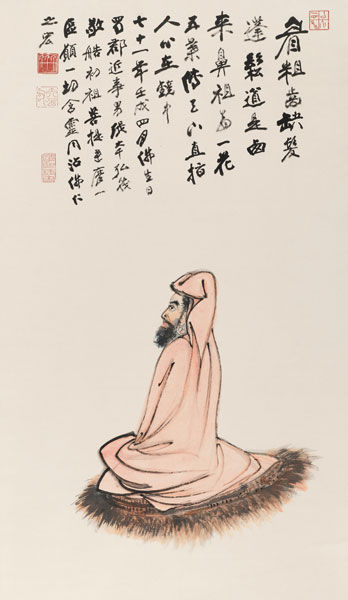 眉粗齒缺髮
蓬鬆道是西
來鼻祖為一花
五葉傳天下直指
人心在鏡中
七十一年壬戌四月佛生日
蜀郡近事男張大千
敬 初祖菩提達磨一
區願一切含靈同沾佛仁
之宏